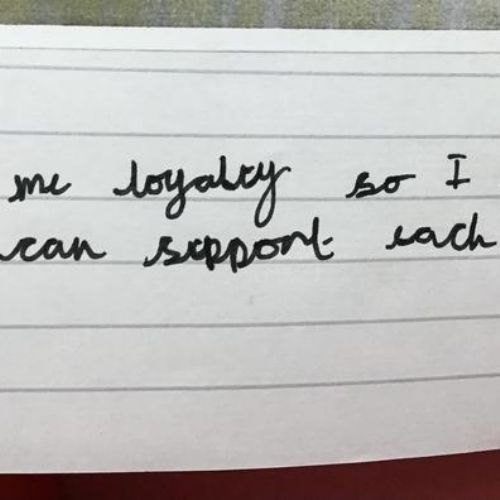 me loyalty so I
can support each